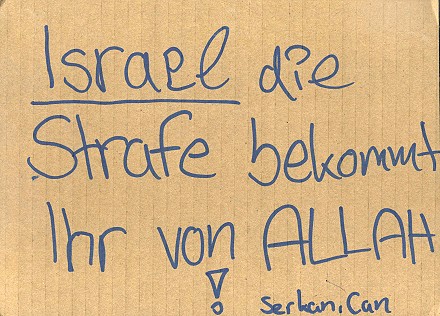 Israel die
Strafe bekommt
Ihr von ALLAH
!
Serkan, Can